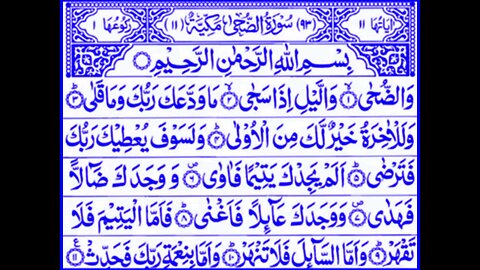 اٰيَاتُهَا ١١ (٩٣) سُوْرَةُ الضُّحٰى مَكِّيَّةٌ (١١) رُكُوْعُهَا ١
بِسْمِ اللّٰهِ الرَّحْمٰنِ الرَّحِيْمِ
وَالضُّحٰى ۙ﴿۱﴾ وَالَّيْلِ اِذَا سَجٰى ۙ﴿۲﴾ مَا وَدَّعَكَ رَبُّكَ وَمَا قَلٰى ؕ﴿۳﴾
وَلَلْاٰخِرَةُ خَيْرٌ لَّكَ مِنَ الْاُوْلٰى ؕ﴿۴﴾ وَلَسَوْفَ يُعْطِيْكَ رَبُّكَ
فَتَرْضٰى ؕ﴿۵﴾ اَلَمْ يَجِدْكَ يَتِيْمًا فَاٰوٰى ۪﴿۶﴾ وَوَجَدَكَ ضَآلًّا
فَهَدٰى ۪﴿۷﴾ وَوَجَدَكَ عَآئِلًا فَاَغْنٰى ؕ﴿۸﴾ فَاَمَّا الْيَتِيْمَ فَلَا
تَقْهَرْ ؕ﴿۹﴾ وَاَمَّا السَّآئِلَ فَلَا تَنْهَرْ ؕ﴿۱۰﴾ وَاَمَّا بِنِعْمَةِ رَبِّكَ فَحَدِّثْ ﴿۱۱﴾ ع